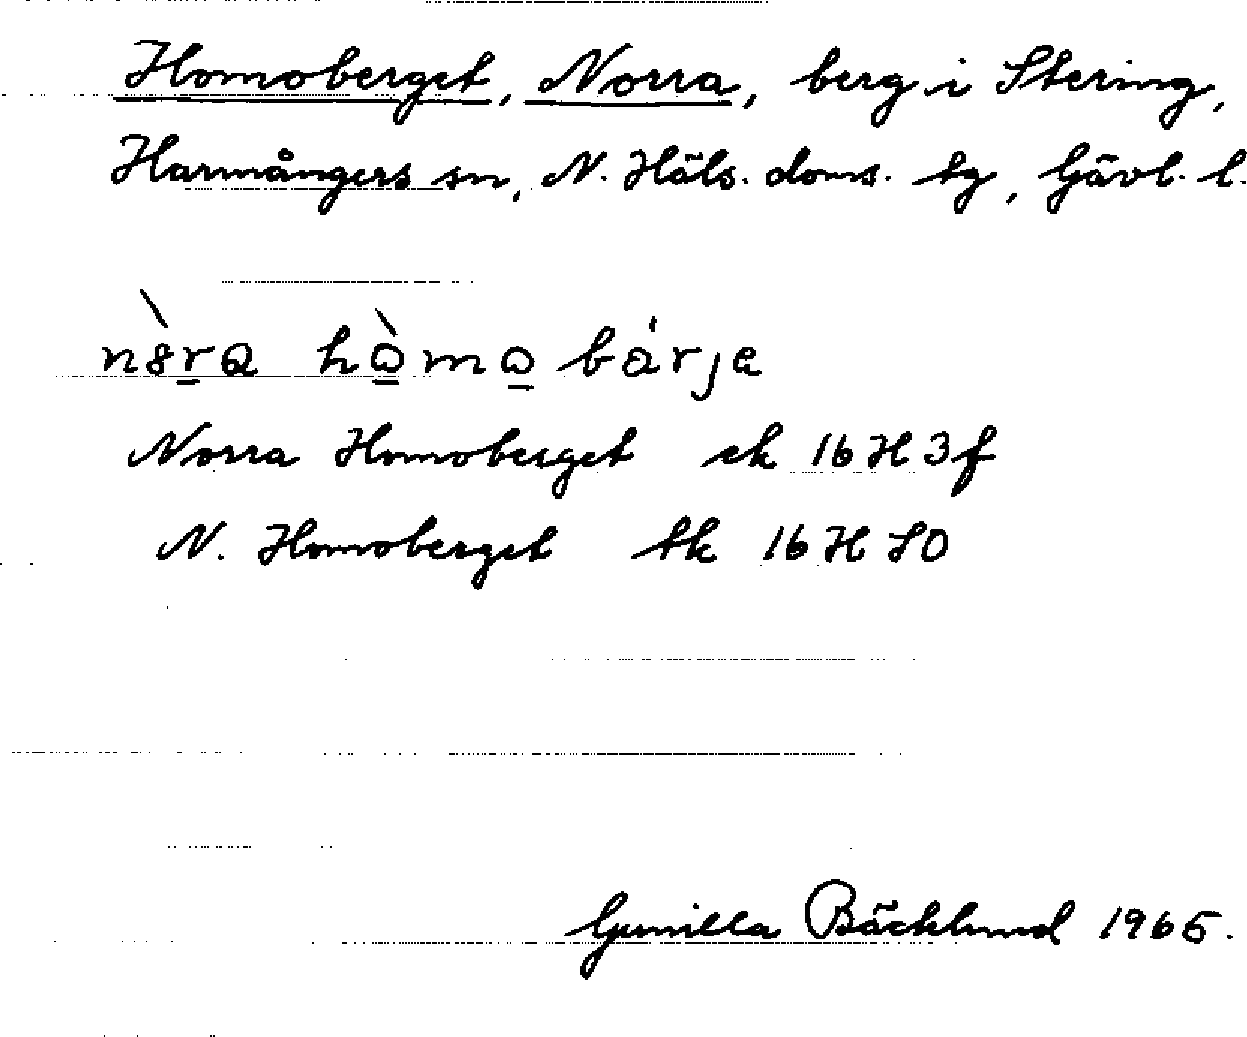 Homoberget, Norra, berg i Stering,
Harmångers sn, N. Häls. doms. tg, Gävl. l.
nòra hòmobárja
Norra Homoberget ek 16H3f
N. Homoberget tk 16H SO
Gunilla Bäcklund 1965.